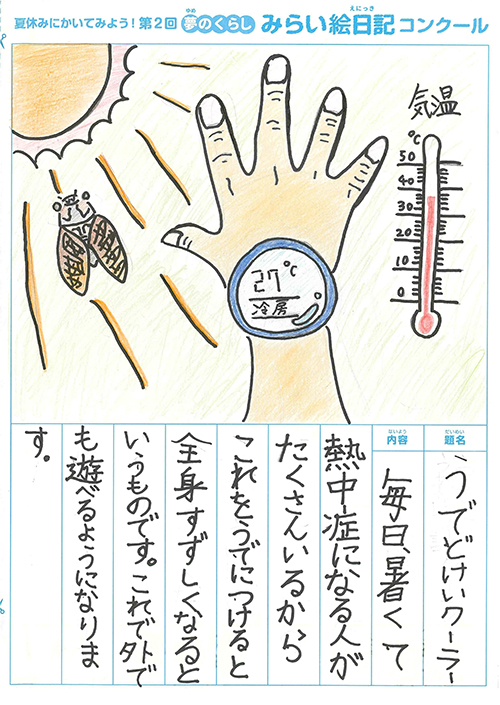 夏休みにかいてみよう!第2回 夢のくらし みらい絵日記コンクール
ゆめ
えにっき
気温
℃
50
40
30
20
10
0
27℃
冷房
だいめい
題名
うでどけいクーラー
ないよう
内容
毎日、暑くて
熱中症になる人が
たくさんいるから
これをうでにつけると
全身すずしくなると
いうものです。これで外で
も遊べるようになりま
す。